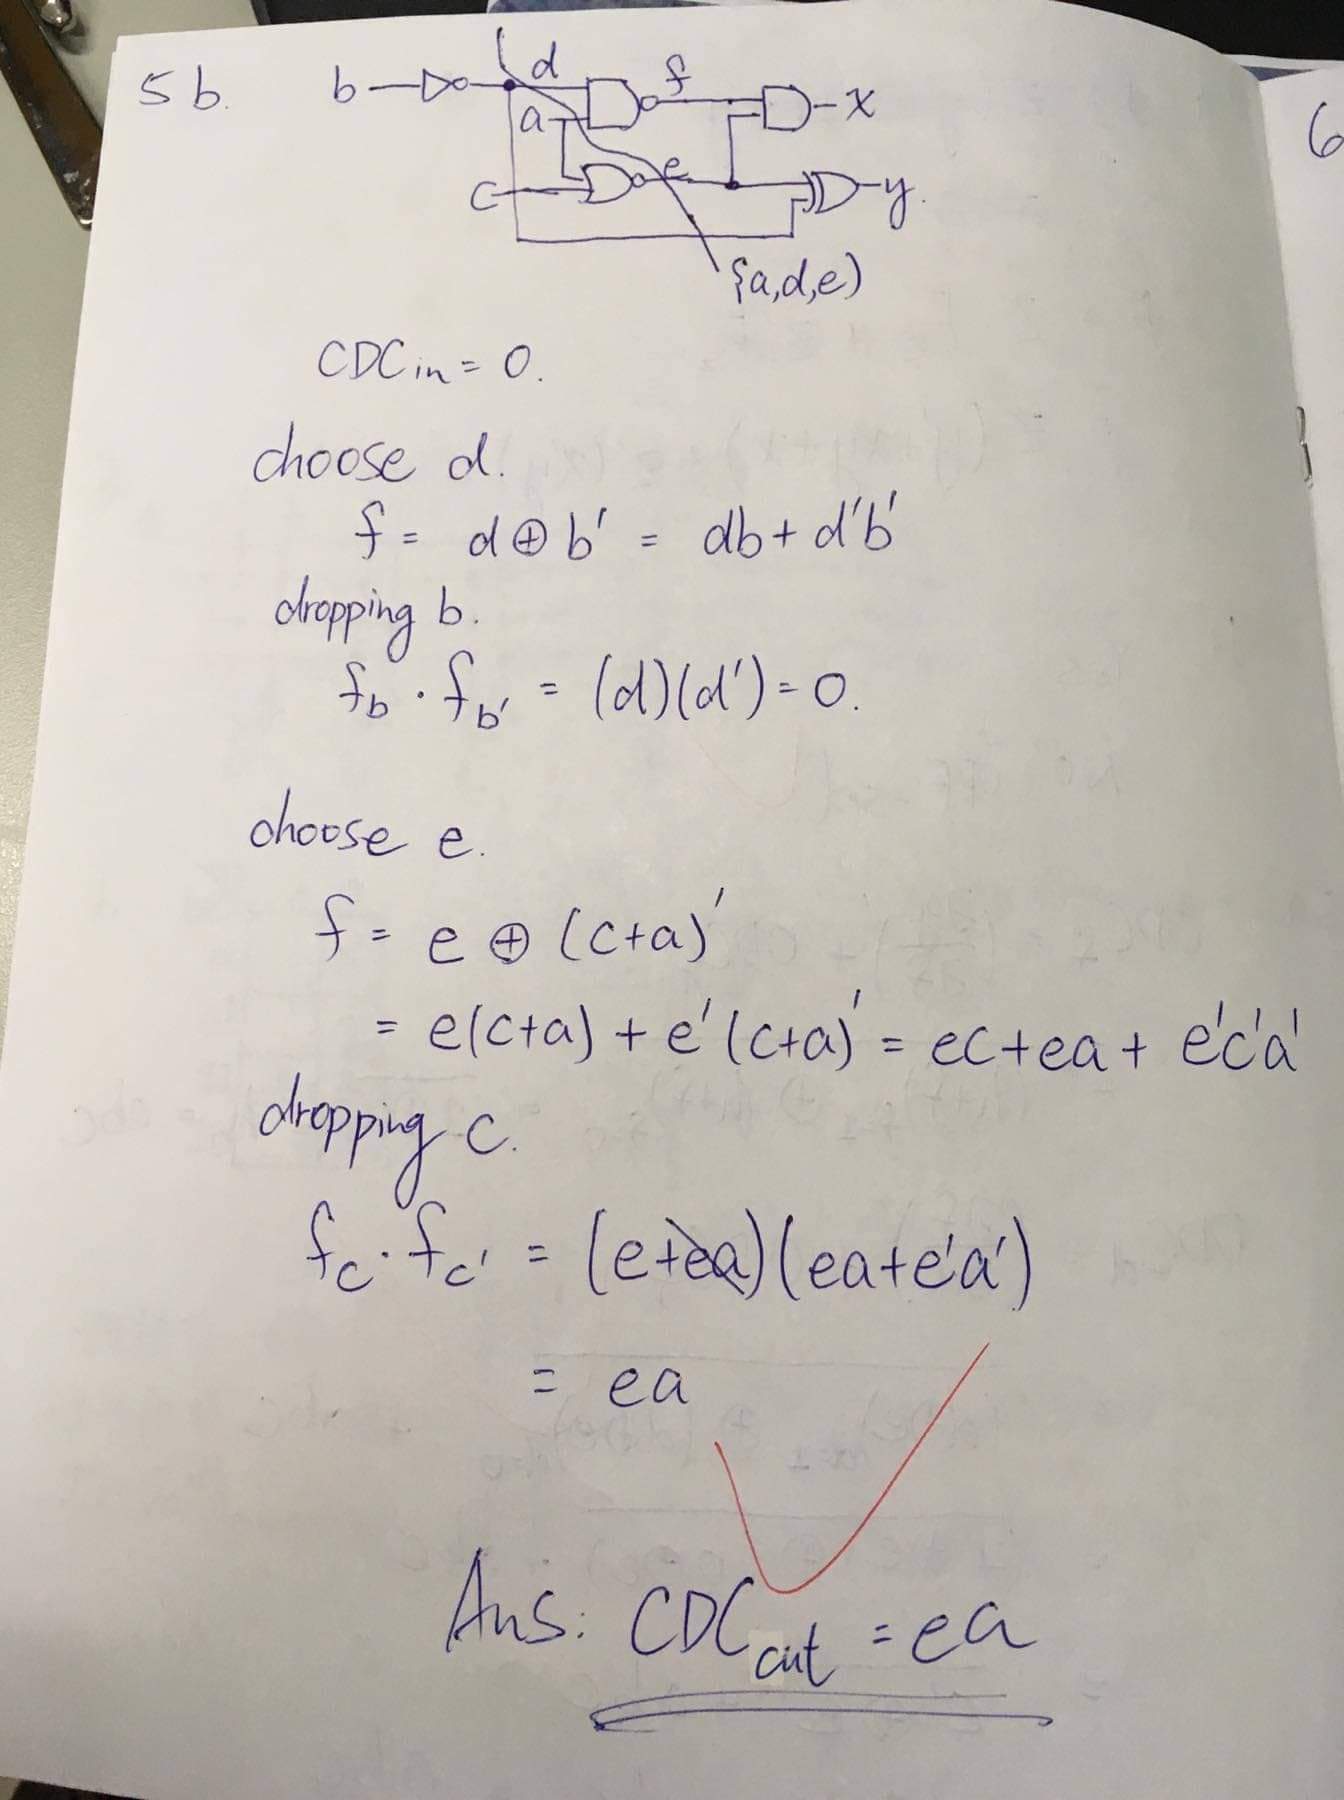 5b.
b
d
f
x
a
c
e
y.
{a,d,e)
6
CDCin = 0.
choose d.
f = d ⊕ b' = db + d'b'
dropping b.
fb · fb' = (d)(d') = 0.
choose e.
f = e ⊕ (c+a)'
= e(c+a) + e'(c+a)' = ec+ea+ e'c'a'
dropping c.
fc · fc' = (e+ea)(ea+e'a')
= ea
Ans: CDCcut = ea